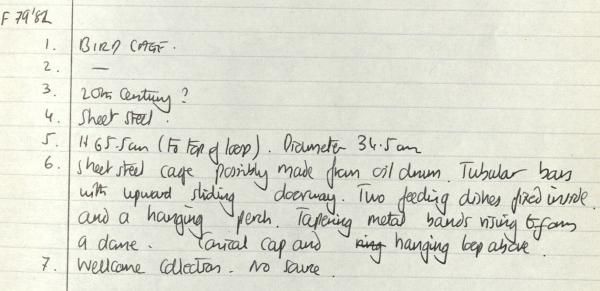 F 79'82
1. BIRD CAGE.
2. —
3. 20th Century?
4. Sheet steel.
5. H 65.5cm (to top of loop). Diameter 34.5cm
6. Sheet steel cage possibly made from oil drum. Tubular bars
with upward sliding doorway. Two feeding dishes fixed inside
and a hanging perch. Tapering metal bands rising to form
a dome. Conical cap and ring hanging loop above.
7. Wellcome Collection. No source.